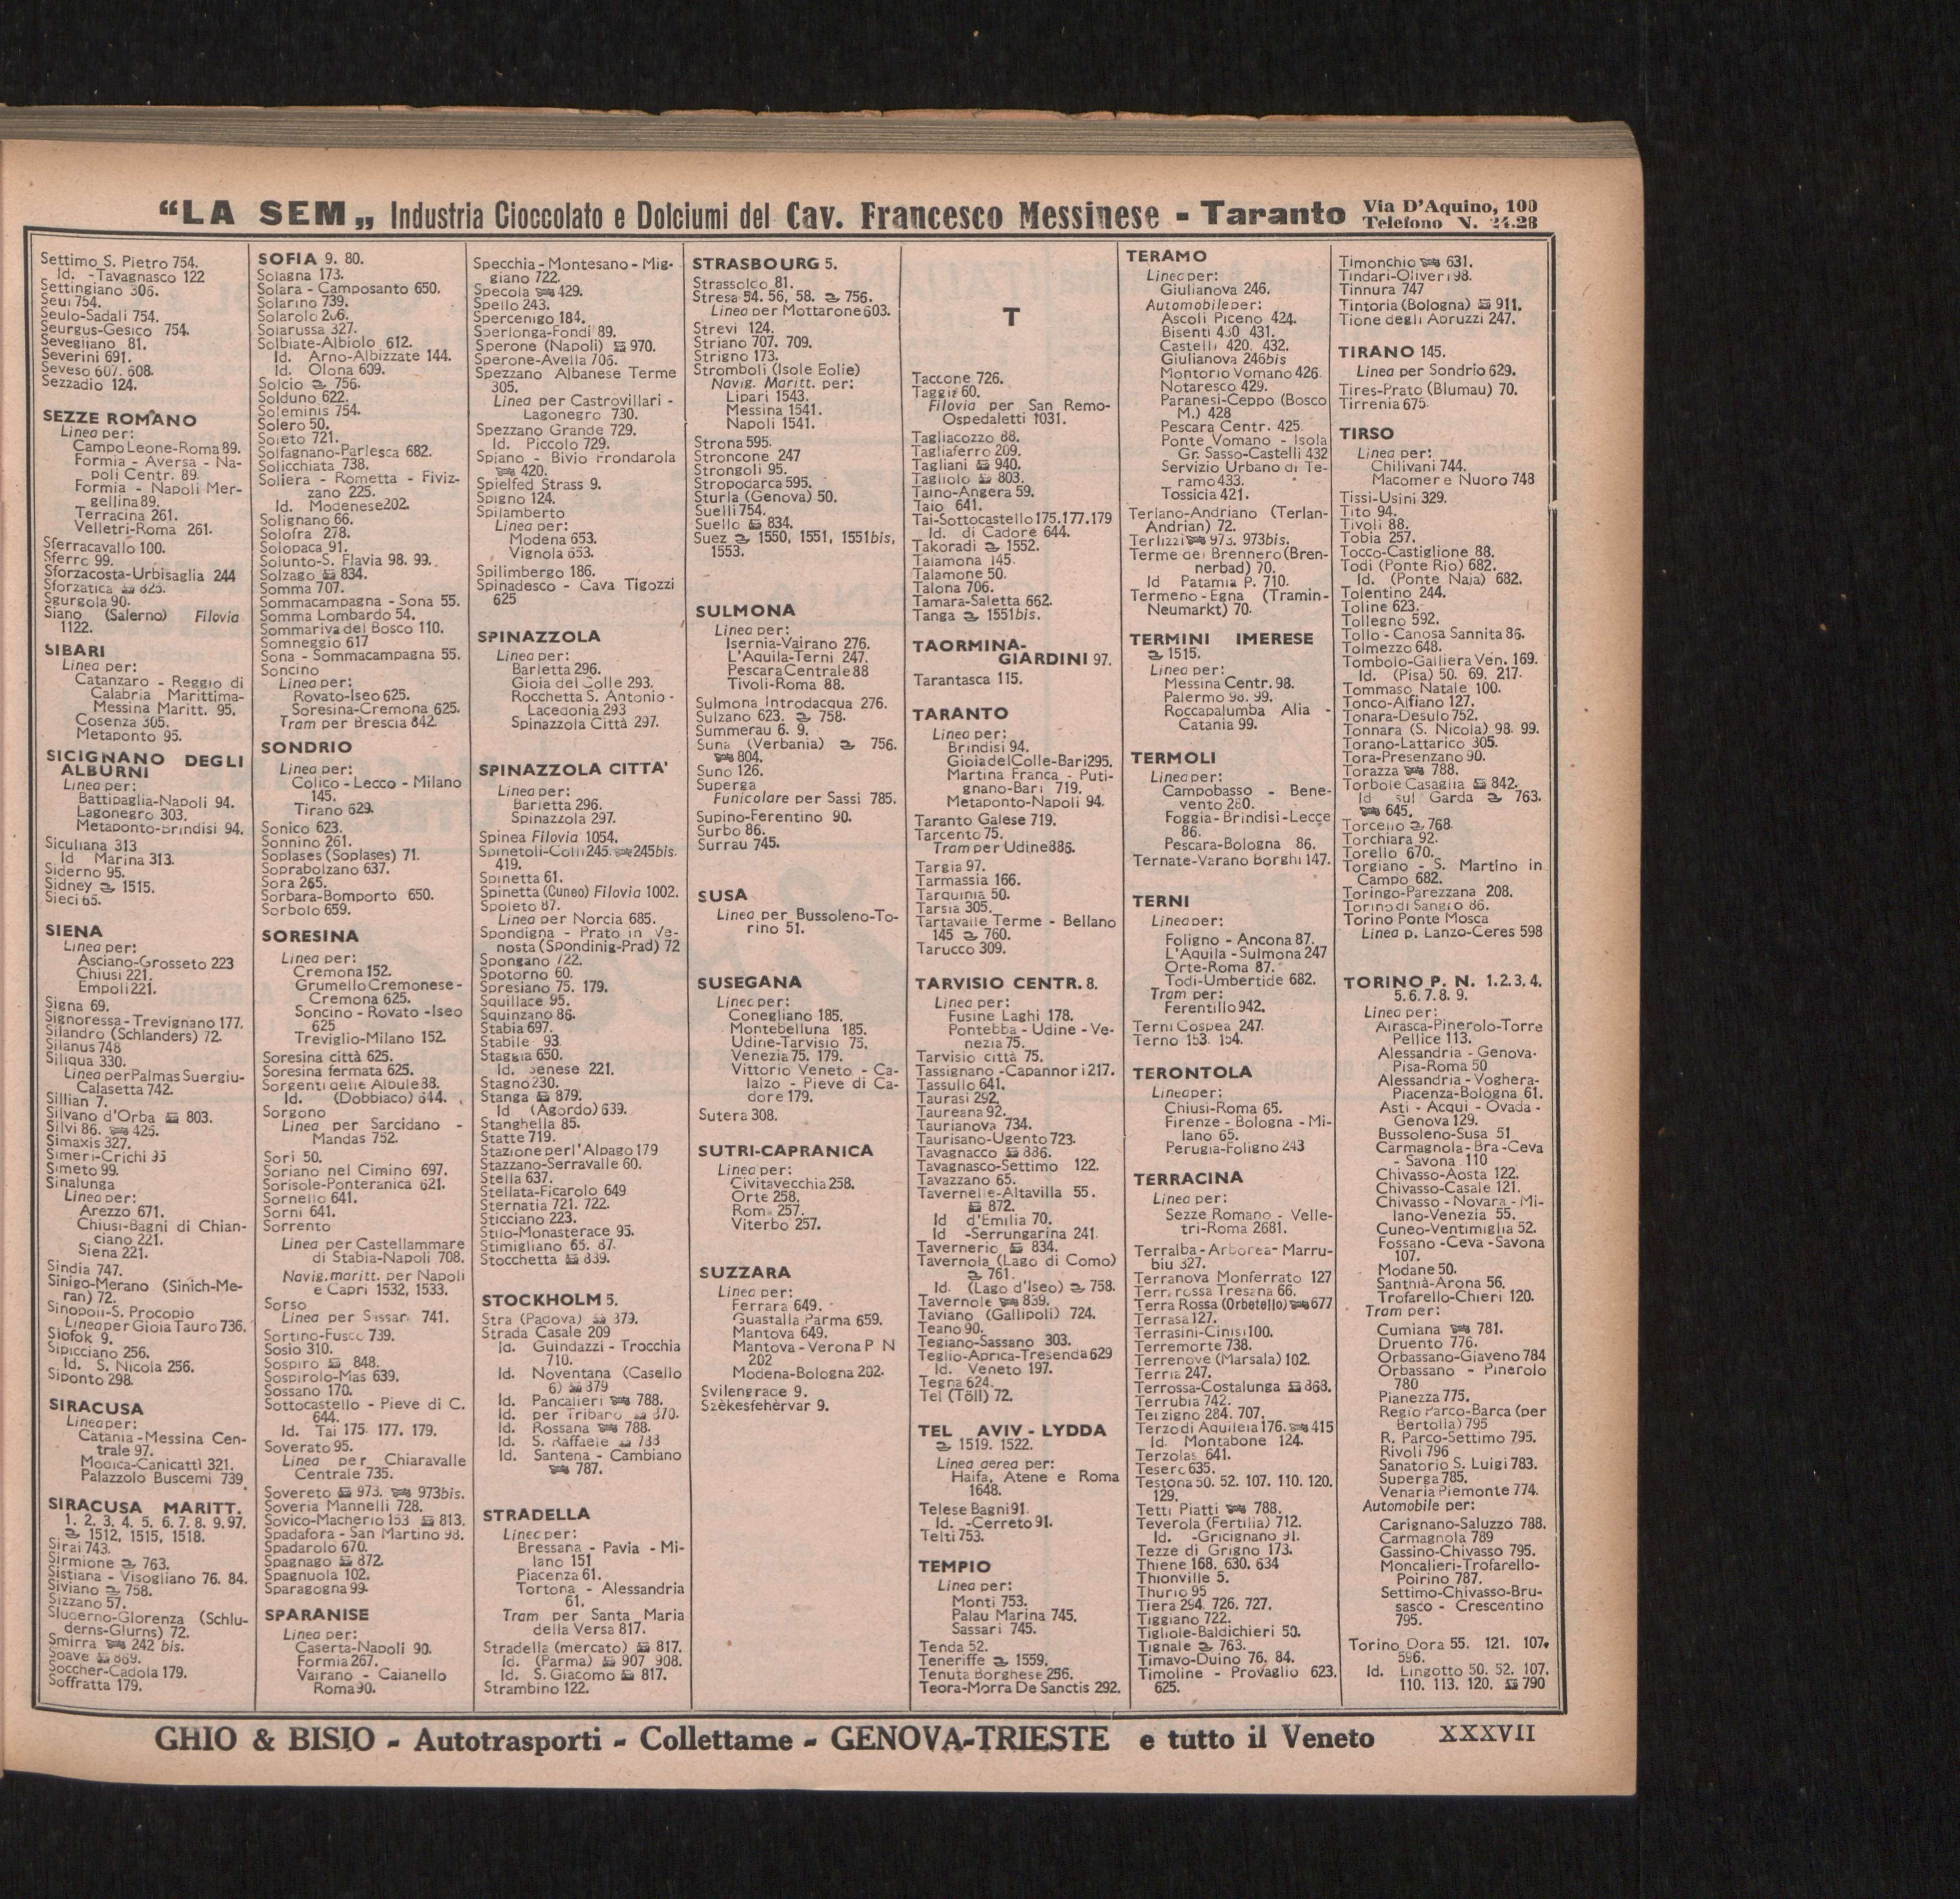 “LA SEM„ Industria Cioccolato e Dolciumi del Cav. Francesco Messinese - Taranto Via D'Aquino, 100
Telefono N. 24.28
Settimo S. Pietro 754.
Id. -Tavagnasco 122
Settingiano 306.
Seui 754.
Seulo-Sadali 754.
Seurgus-Gesico 754.
Sevegliano 81.
Severini 691.
Seveso 607. 608.
Sezzadio 124.
SEZZE ROMANO
Linea per:
Campo Leone-Roma 89.
Formia - Aversa - Na-
poli Centr. 89.
Formia - Napoli Mer-
gellina 89.
Terracina 261.
Velletri-Roma 261.
Sferracavallo 100.
Sferro 99.
Sforzacosta-Urbisaglia 244
Sforzatica 825.
Sgurgola 90.
Siano (Salerno) Filovia
1122.
SIBARI
Linea per:
Catanzaro - Reggio di
Calabria Marittima-
Messina Maritt. 95.
Cosenza 305.
Metaponto 95.
SICIGNANO DEGLI
ALBURNI
Linea per:
Battipaglia-Napoli 94.
Lagonegro 303.
Metaponto-Brindisi 94.
Siculiana 313
Id Marina 313.
Siderno 95.
Sidney 1515.
Sieci 65.
SIENA
Linea per:
Asciano-Grosseto 223
Chiusi 221.
Empoli 221.
Signa 69.
Signoressa-Trevignano 177.
Silandro (Schlanders) 72.
Silanus 748
Siliqua 330.
Linea per Palmas Suergiu-
Calasetta 742.
Sillian 7.
Silvano d'Orba 803.
Silvi 86. 425.
Simaxis 327.
Simeri-Crichi 95
Simeto 99.
Sinalunga
Linea per:
Arezzo 671.
Chiusi-Bagni di Chian-
ciano 221.
Siena 221.
Sindia 747.
Sinigo-Merano (Sinich-Me-
ran) 72.
Sinopoli-S. Procopio
Linea per Gioia Tauro 736.
Siofok 9.
Sipicciano 256.
Id. S. Nicola 256.
Siponto 298.
SIRACUSA
Linea per:
Catania-Messina Cen-
trale 97.
Modica-Canicattì 321.
Palazzolo Buscemi 739
SIRACUSA MARITT.
1. 2. 3. 4. 5. 6. 7. 8. 9. 97.
1512, 1515, 1518.
Sirai 743.
Sirmione 763.
Sistiana - Visogliano 76. 84.
Siviano 758.
Sizzano 57.
Sluderno-Glorenza (Schlu-
derns-Glurns) 72.
Smirra 242 bis.
Soave 869.
Soccher-Cadola 179.
Soffratta 179.
SOFIA 9. 80.
Solagna 173.
Solara - Camposanto 650.
Solarino 739.
Solarolo 206.
Solarussa 327.
Solbiate-Albiolo 612.
Id. Arno-Albizzate 144.
Id. Olona 609.
Solcio 756.
Solduno 622.
Soleminis 754.
Solero 50.
Soleto 721.
Solfagnano-Parlesca 682.
Solicchiata 738.
Soliera - Rometta - Fiviz-
zano 225.
Id. Modenese 202.
Solignano 66.
Solofra 278.
Solopaca 91.
Solunto-S. Flavia 98. 99.
Solzago 834.
Somma 707.
Sommacampagna - Sona 55.
Somma Lombardo 54.
Sommariva del Bosco 110.
Somneggio 617
Sona - Sommacampagna 55.
Soncino
Linea per:
Rovato-Iseo 625.
Soresina-Cremona 625.
Tram per Brescia 842.
SONDRIO
Linea per:
Colico - Lecco - Milano
145.
Tirano 629.
Sonico 623.
Sonnino 261.
Soplases (Soplases) 71.
Soprabolzano 637.
Sora 265.
Sorbara-Bomporto 650.
Sorbolo 659.
SORESINA
Linea per:
Cremona 152.
Grumello Cremonese-
Cremona 625.
Soncino - Rovato - Iseo
625
Treviglio-Milano 152.
Soresina città 625.
Soresina fermata 625.
Sorgenti delle Albule 88.
Id. (Dobbiaco) 644.
Sorgono
Linea per Sarcidano -
Mandas 752.
Sori 50.
Soriano nel Cimino 697.
Sorisole-Ponteranica 621.
Sornello 641.
Sorni 641.
Sorrento
Linea per Castellammare
di Stabia-Napoli 708.
Navig. maritt. per Napoli
e Capri 1532, 1533.
Sorso
Linea per Sassar 741.
Sortino-Fusco 739.
Sosio 310.
Sospiro 848.
Sospirolo-Mas 639.
Sossano 170.
Sottocastello - Pieve di C.
644.
Id. Tai 175. 177. 179.
Soverato 95.
Linea per Chiaravalle
Centrale 735.
Sovereto 973. 973bis.
Soveria Mannelli 728.
Sovico-Macherio 153 813.
Spadafora - San Martino 98.
Spadarolo 670.
Spagnago 872.
Spagnuola 102.
Sparagogna 99.
SPARANISE
Linea per:
Caserta-Napoli 90.
Formia 267.
Vairano - Caianello
Roma 90.
Specchia - Montesano - Mig-
giano 722.
Specola 429.
Spello 243.
Spercenigo 184.
Sperlonga-Fondi 89.
Sperone (Napoli) 970.
Sperone-Avella 706.
Spezzano Albanese Terme
305.
Linea per Castrovillari -
Lagonegro 730.
Spezzano Grande 729.
Id. Piccolo 729.
Spiano - Bivio Frondarola
420.
Spielfed Strass 9.
Spigno 124.
Spilamberto
Linea per:
Modena 653.
Vignola 653.
Spilimbergo 186.
Spinadesco - Cava Tigozzi
625
SPINAZZOLA
Linea per:
Barletta 296.
Gioia del Colle 293.
Rocchetta S. Antonio -
Lacedonia 293
Spinazzola Città 297.
SPINAZZOLA CITTA'
Linea per:
Barletta 296.
Spinazzola 297.
Spinea Filovia 1054.
Spinetoli-Colli 245. 245bis.
419.
Spinetta 61.
Spinetta (Cuneo) Filovia 1002.
Spoleto 87.
Linea per Norcia 685.
Spondigna - Prato in Ve-
nosta (Spondinig-Prad) 72
Spongano 722.
Spotorno 60.
Spresiano 75. 179.
Squillace 95.
Squinzano 86.
Stabia 697.
Stabile 93.
Staggia 650.
Id. Senese 221.
Stagno 230.
Stanga 879.
Id (Agordo) 639.
Stanghella 85.
Statte 719.
Stazione per l'Alpago 179
Stazzano-Serravalle 60.
Stella 637.
Stellata-Ficarolo 649
Sternatia 721. 722.
Sticciano 223.
Stilo-Monasterace 95.
Stimigliano 65. 87.
Stocchetta 839.
STOCKHOLM 5.
Stra (Padova) 879.
Strada Casale 209
Id. Guindazzi - Trocchia
710.
Id. Noventana (Casello
6) 879
Id. Pancalieri 788.
Id. per Tribano 870.
Id. Rossana 788.
Id. S. Raffaele 788
Id. Santena - Cambiano
787.
STRADELLA
Linea per:
Bressana - Pavia - Mi-
lano 151
Piacenza 61.
Tortona - Alessandria
61.
Tram per Santa Maria
della Versa 817.
Stradella (mercato) 817.
Id. (Parma) 907 908.
Id. S. Giacomo 817.
Strambino 122.
STRASBOURG 5.
Strassoldo 81.
Stresa 54. 56, 58. 756.
Linea per Mottarone 603.
Strevi 124.
Striano 707. 709.
Strigno 173.
Stromboli (Isole Eolie)
Navig. Maritt. per:
Lipari 1543.
Messina 1541.
Napoli 1541.
Strona 595.
Stroncone 247
Strongoli 95.
Stropodarca 595.
Sturla (Genova) 50.
Suelli 754.
Suello 834.
Suez 1550, 1551, 1551bis,
1553.
SULMONA
Linea per:
Isernia-Vairano 276.
L'Aquila-Terni 247.
Pescara Centrale 88
Tivoli-Roma 88.
Sulmona Introdacqua 276.
Sulzano 623. 758.
Summerau 6. 9.
Suna (Verbania) 756.
804.
Suno 126.
Superga
Funicolare per Sassi 785.
Supino-Ferentino 90.
Surbo 86.
Surrau 745.
SUSA
Linea per Bussoleno-To-
rino 51.
SUSEGANA
Linea per:
Conegliano 185.
Montebelluna 185.
Udine-Tarvisio 75.
Venezia 75. 179.
Vittorio Veneto - Ca-
lalzo - Pieve di Ca-
dore 179.
Sutera 308.
SUTRI-CAPRANICA
Linea per:
Civitavecchia 258.
Orte 258.
Roma 257.
Viterbo 257.
SUZZARA
Linea per:
Ferrara 649.
Guastalla Parma 659.
Mantova 649.
Mantova - Verona P N
202
Modena-Bologna 202.
Svilengrace 9.
Szèkesfehèrvar 9.
T
Taccone 726.
Taggia 60.
Filovia per San Remo-
Ospedaletti 1031.
Tagliacozzo 88.
Tagliaferro 209.
Tagliani 940.
Tagliolo 803.
Taino-Angera 59.
Taio 641.
Tai-Sottocastello 175.177.179
Id. di Cadore 644.
Takoradi 1552.
Talamona 145.
Talamone 50.
Talona 706.
Tamara-Saletta 662.
Tanga 1551bis.
TAORMINA-
GIARDINI 97.
Tarantasca 115.
TARANTO
Linea per:
Brindisi 94.
Gioia del Colle-Bari 295.
Martina Franca - Puti-
gnano-Bari 719.
Metaponto-Napoli 94.
Taranto Galese 719.
Tarcento 75.
Tram per Udine 886.
Targia 97.
Tarmassia 166.
Tarquinia 50.
Tarsia 305.
Tartavalle Terme - Bellano
145 760.
Tarucco 309.
TARVISIO CENTR. 8.
Linea per:
Fusine Laghi 178.
Pontebba - Udine - Ve-
nezia 75.
Tarvisio città 75.
Tassignano-Capannori 217.
Tassullo 641.
Taurasi 292.
Taureana 92.
Taurianova 734.
Taurisano-Ugento 723.
Tavagnacco 886.
Tavagnasco-Settimo 122.
Tavazzano 65.
Tavernelle-Altavilla 55.
872.
Id d'Emilia 70.
Id -Serrungarina 241.
Tavernerio 834.
Tavernola (Lago di Como)
761.
Id. (Lago d'Iseo) 758.
Tavernole 839.
Taviano (Gallipoli) 724.
Teano 90.
Tegiano-Sassano 303.
Teglio-Aprica-Tresenda 629
Id. Veneto 197.
Tegna 624.
Tel (Töll) 72.
TEL AVIV - LYDDA
1519. 1522.
Linea aerea per:
Haifa, Atene e Roma
1648.
Telese Bagni 91.
Id. -Cerreto 91.
Telti 753.
TEMPIO
Linea per:
Monti 753.
Palau Marina 745.
Sassari 745.
Tenda 52.
Teneriffe 1559.
Tenuta Borghese 256.
Teora-Morra De Sanctis 292.
TERAMO
Linea per:
Giulianova 246.
Automobile per:
Ascoli Piceno 424.
Bisenti 430 431.
Castelli 420. 432.
Giulianova 246bis
Montorio Vomano 426.
Notaresco 429.
Paranesi-Ceppo (Bosco
M.) 428
Pescara Centr. 425.
Ponte Vomano - Isola
Gr. Sasso-Castelli 432
Servizio Urbano di Te-
ramo 433.
Tossicia 421.
Terlano-Andriano (Terlan-
Andrian) 72.
Terlizzi 973. 973bis.
Terme del Brennero (Bren-
nerbad) 70.
Id Patamia P. 710.
Termeno-Egna (Tramin-
Neumarkt) 70.
TERMINI IMERESE
1515.
Linea per:
Messina Centr. 98.
Palermo 98. 99.
Roccapalumba Alia -
Catania 99.
TERMOLI
Linea per:
Campobasso - Bene-
vento 280.
Foggia-Brindisi-Lecce
86.
Pescara-Bologna 86.
Ternate-Varano Borghi 147.
TERNI
Linea per:
Foligno - Ancona 87.
L'Aquila - Sulmona 247
Orte-Roma 87.
Todi-Umbertide 682.
Tram per:
Ferentillo 942.
Terni Cospea 247.
Terno 153. 154.
TERONTOLA
Linea per:
Chiusi-Roma 65.
Firenze - Bologna - Mi-
lano 65.
Perugia-Foligno 243
TERRACINA
Linea per:
Sezze Romano - Velle-
tri-Roma 2681.
Terralba - Arborea - Marru-
biu 327.
Terranova Monferrato 127
Terrarossa Tresana 66.
Terra Rossa (Orbetello) 677
Terrasa 127.
Terrasini-Cinisi 100.
Terremorte 738.
Terrenove (Marsala) 102.
Terria 247.
Terrossa-Costalunga 868.
Terrubia 742.
Terzigno 284. 707.
Terzo di Aquileia 176. 415
Id. Montabone 124.
Terzolas 641.
Tesero 635.
Testona 50. 52. 107. 110. 120.
129.
Tetti Piatti 788.
Teverola (Fertilia) 712.
Id. -Gricignano 91.
Tezze di Grigno 173.
Thiene 168, 630. 634
Thionville 5.
Thurio 95
Tiera 294. 726. 727.
Tiggiano 722.
Tigliole-Baldichieri 50.
Tignale 763.
Timavo-Duino 76. 84.
Timoline - Provaglio 623.
625.
Timonchio 631.
Tindari-Oliveri 98.
Tinnura 747
Tintoria (Bologna) 911.
Tione degli Abruzzi 247.
TIRANO 145.
Linea per Sondrio 629.
Tires-Prato (Blumau) 70.
Tirrenia 675.
TIRSO
Linea per:
Chilivani 744.
Macomer e Nuoro 748
Tissi-Usini 329.
Tito 94.
Tivoli 88.
Tobia 257.
Tocco-Castiglione 88.
Todi (Ponte Rio) 682.
Id. (Ponte Naia) 682.
Tolentino 244.
Toline 623.
Tollegno 592.
Tollo - Canosa Sannita 86.
Tolmezzo 648.
Tombolo-Galliera Ven. 169.
Id. (Pisa) 50. 69. 217.
Tommaso Natale 100.
Tonco-Alfiano 127.
Tonara-Desulo 752.
Tonnara (S. Nicola) 98. 99.
Torano-Lattarico 305.
Tora-Presenzano 90.
Torazza 788.
Torbole Casaglia 842.
Id sul Garda 763.
645.
Torcello 768.
Torchiara 92.
Torello 670.
Torgiano - S. Martino in
Campo 682.
Toringo-Parezzana 208.
Torino di Sangro 86.
Torino Ponte Mosca
Linea p. Lanzo-Ceres 598
TORINO P. N. 1.2.3.4.
5.6.7.8.9.
Linea per:
Airasca-Pinerolo-Torre
Pellice 113.
Alessandria - Genova-
Pisa-Roma 50
Alessandria - Voghera-
Piacenza-Bologna 61.
Asti - Acqui - Ovada -
Genova 129.
Bussoleno-Susa 51
Carmagnola - Bra - Ceva
- Savona 110
Chivasso-Aosta 122.
Chivasso-Casale 121.
Chivasso - Novara - Mi-
lano-Venezia 55.
Cuneo-Ventimiglia 52.
Fossano - Ceva - Savona
107.
Modane 50.
Santhià-Arona 56.
Trofarello-Chieri 120.
Tram per:
Cumiana 781.
Druento 776.
Orbassano-Giaveno 784
Orbassano - Pinerolo
780
Pianezza 775.
Regio Parco-Barca (per
Bertolla) 795
R. Parco-Settimo 795.
Rivoli 796
Sanatorio S. Luigi 783.
Superga 785.
Venaria Piemonte 774.
Automobile per:
Carignano-Saluzzo 788.
Carmagnola 789
Gassino-Chivasso 795.
Moncalieri-Trofarello-
Poirino 787.
Settimo-Chivasso-Bru-
sasco - Crescentino
795.
Torino Dora 55. 121. 107.
596.
Id. Lingotto 50. 52. 107.
110. 113. 120. 790
GHIO & BISIO - Autotrasporti - Collettame - GENOVA-TRIESTE e tutto il Veneto XXXVII